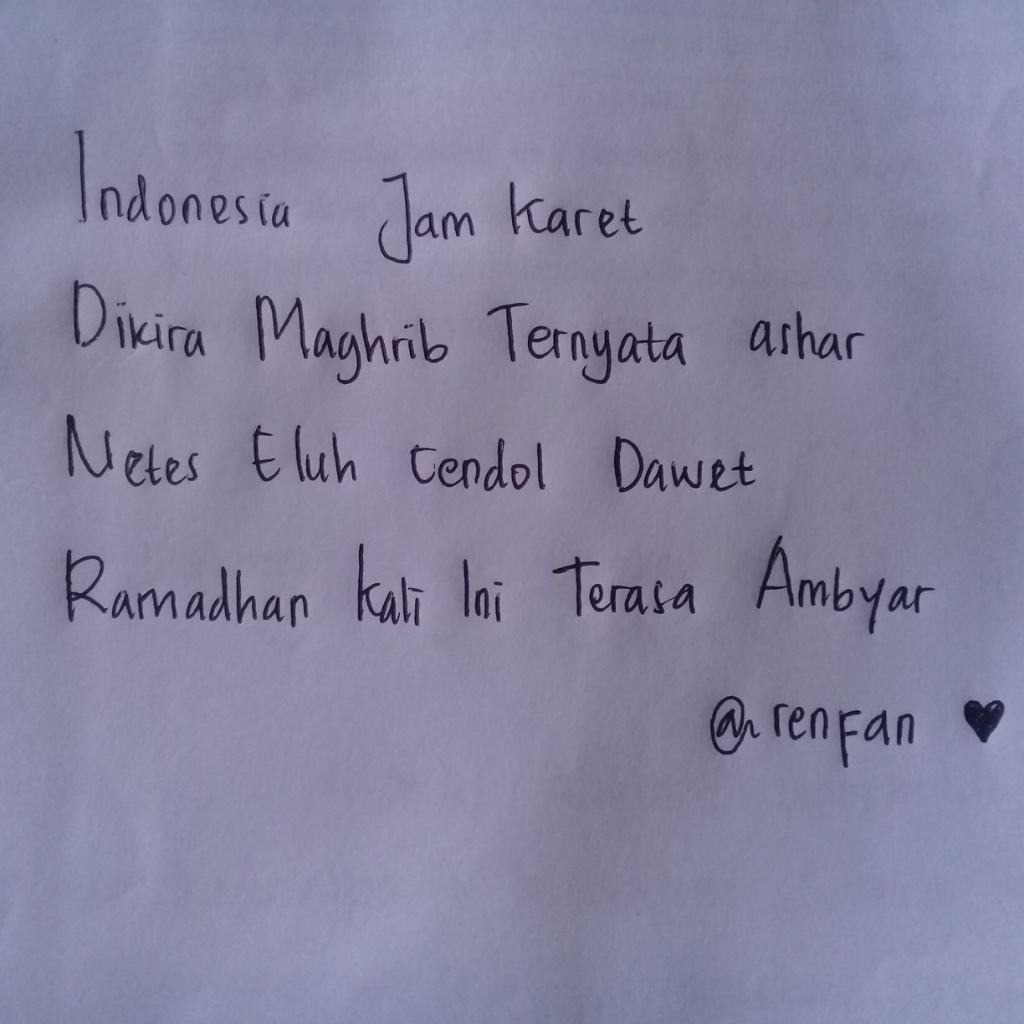 Indonesia Jam Karet
Dikira Maghrib Ternyata ashar
Netes Eluh Cendol Dawet
Ramadhan Kali Ini Terasa Ambyar
@renfan ♥